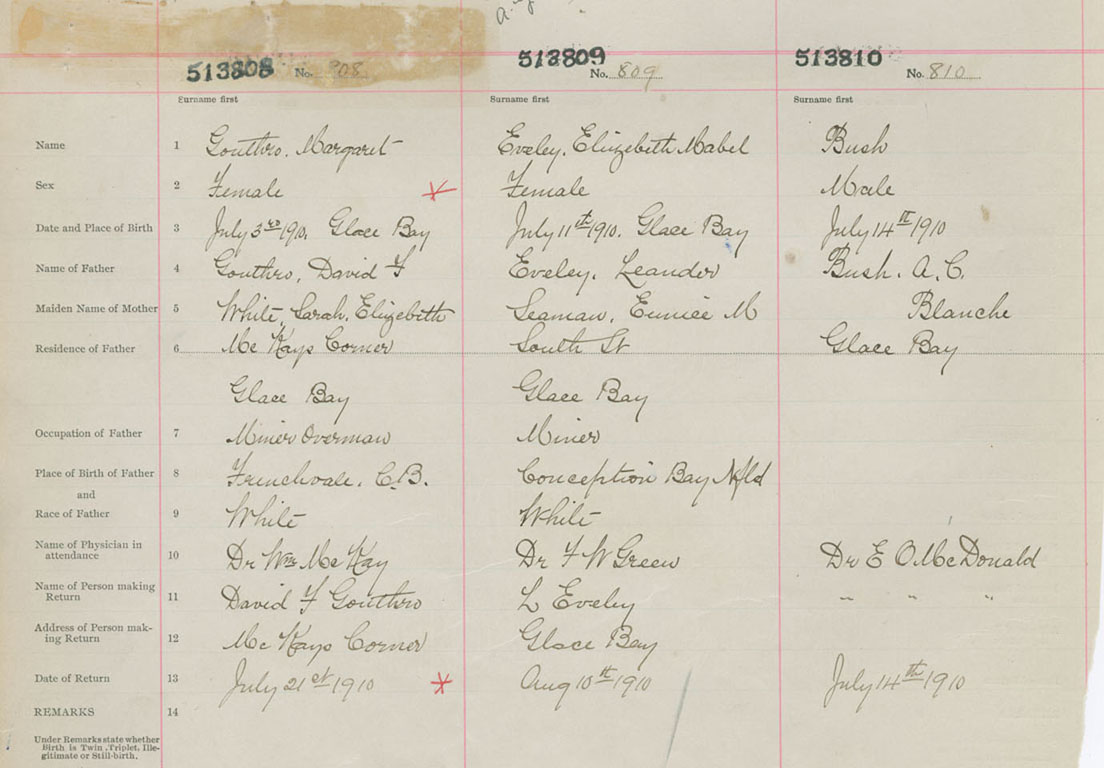 513808 No. 908 513809 No. 809 513810 No. 810
Surname first Surname first Surname first
Name 1 Gouthro, Margaret Eveley, Elizebeth Mabel Bush
Sex 2 Female Female Male
Date and Place of Birth 3 July 3rd 1910, Glace Bay July 11th 1910. Glace Bay July 14th 1910
Name of Father 4 Gouthro, David F Eveley, Leander Bush. A. C.
Maiden Name of Mother 5 White, Sarah, Elizebeth Seaman, Eunice M Blanche
Residence of Father 6 Mc Kays Corner South St Glace Bay
Glace Bay Glace Bay
Occupation of Father 7 Miner Overman Miner
Place of Birth of Father 8 Frenchvale, C.B. Conception Bay Nfld
and
Race of Father 9 White White
Name of Physician in
attendance 10 Dr Wm Mc Kay Dr F W Green Dr E O. Mc Donald
Name of Person making
Return 11 David F Gouthro L Eveley " " "
Address of Person mak-
ing Return 12 Mc Kays Corner Glace Bay
Date of Return 13 July 21st 1910 Aug 10th 1910 July 14th 1910
REMARKS 14
Under Remarks state whether
Birth is Twin, Triplet, Ille-
gitimate or Still-birth.